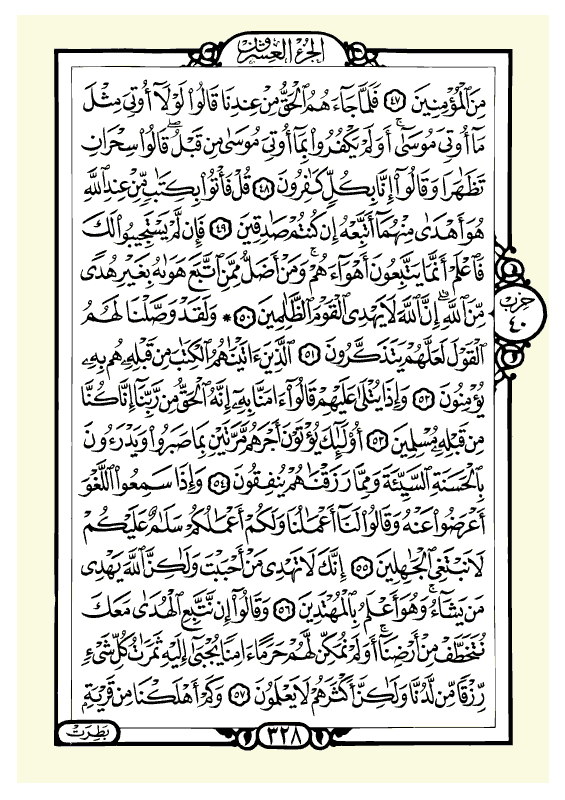 الجزء العشرون
مِنَ ٱلْمُؤْمِنِينَ ٤٧ فَلَمَّا جَآءَهُمُ ٱلْحَقُّ مِنْ عِندِنَا قَالُوا۟ لَوْلَآ أُوتِىَ مِثْلَ
مَآ أُوتِىَ مُوسَىٰٓ ۚ أَوَلَمْ يَكْفُرُوا۟ بِمَآ أُوتِىَ مُوسَىٰ مِن قَبْلُ ۖ قَالُوا۟ سِحْرَانِ
تَظَٰهَرَا وَقَالُوٓا۟ إِنَّا بِكُلٍّ كَٰفِرُونَ ٤٨ قُلْ فَأْتُوا۟ بِكِتَٰبٍ مِّنْ عِندِ ٱللَّهِ
هُوَ أَهْدَىٰ مِنْهُمَآ أَتَّبِعْهُ إِن كُنتُمْ صَٰدِقِينَ ٤٩ فَإِن لَّمْ يَسْتَجِيبُوا۟ لَكَ
فَٱعْلَمْ أَنَّمَا يَتَّبِعُونَ أَهْوَآءَهُمْ ۚ وَمَنْ أَضَلُّ مِمَّنِ ٱتَّبَعَ هَوَىٰهُ بِغَيْرِ هُدًى
مِّنَ ٱللَّهِ ۚ إِنَّ ٱللَّهَ لَا يَهْدِى ٱلْقَوْمَ ٱلظَّٰلِمِينَ ٥٠ * وَلَقَدْ وَصَّلْنَا لَهُمُ
ٱلْقَوْلَ لَعَلَّهُمْ يَتَذَكَّرُونَ ٥١ ٱلَّذِينَ ءَاتَيْنَٰهُمُ ٱلْكِتَٰبَ مِن قَبْلِهِۦ هُم بِهِۦ
يُؤْمِنُونَ ٥٢ وَإِذَا يُتْلَىٰ عَلَيْهِمْ قَالُوٓا۟ ءَامَنَّا بِهِۦٓ إِنَّهُ ٱلْحَقُّ مِن رَّبِّنَآ إِنَّا كُنَّا
مِن قَبْلِهِۦ مُسْلِمِينَ ٥٣ أُو۟لَٰٓئِكَ يُؤْتَوْنَ أَجْرَهُم مَّرَّتَيْنِ بِمَا صَبَرُوا۟ وَيَدْرَءُونَ
بِٱلْحَسَنَةِ ٱلسَّيِّئَةَ وَمِمَّا رَزَقْنَٰهُمْ يُنفِقُونَ ٥٤ وَإِذَا سَمِعُوا۟ ٱللَّغْوَ
أَعْرَضُوا۟ عَنْهُ وَقَالُوا۟ لَنَآ أَعْمَٰلُنَا وَلَكُمْ أَعْمَٰلُكُمْ سَلَٰمٌ عَلَيْكُمْ
لَا نَبْتَغِى ٱلْجَٰهِلِينَ ٥٥ إِنَّكَ لَا تَهْدِى مَنْ أَحْبَبْتَ وَلَٰكِنَّ ٱللَّهَ يَهْدِى
مَن يَشَآءُ ۚ وَهُوَ أَعْلَمُ بِٱلْمُهْتَدِينَ ٥٦ وَقَالُوٓا۟ إِن نَّتَّبِعِ ٱلْهُدَىٰ مَعَكَ
نُتَخَطَّفْ مِنْ أَرْضِنَآ ۚ أَوَلَمْ نُمَكِّن لَّهُمْ حَرَمًا ءَامِنًا يُجْبَىٰٓ إِلَيْهِ ثَمَرَٰتُ كُلِّ شَىْءٍ
رِّزْقًا مِّن لَّدُنَّا وَلَٰكِنَّ أَكْثَرَهُمْ لَا يَعْلَمُونَ ٥٧ وَكَمْ أَهْلَكْنَا مِن قَرْيَةٍۭ
حزب
٤٠
٣٢٨
بَطِرَتْ